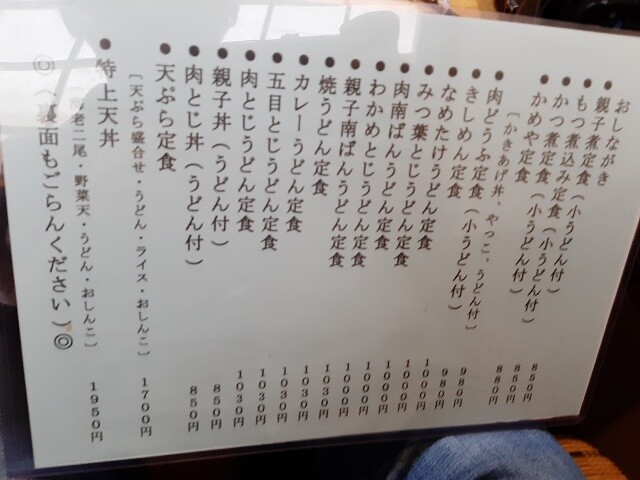 おしながき
●親子煮定食(小うどん付) 850円
●もつ煮込み定食(小うどん付) 850円
●かつ煮定食(小うどん付) 880円
●かめや定食 980円
〔かきあげ丼、やっこ、うどん付〕
●肉どうふ定食(小うどん付) 980円
●きしめん定食 1000円
●なめたけうどん定食 1000円
●みつ葉とじうどん定食 1000円
●肉南ばんうどん定食 1000円
●わかめとじうどん定食 1000円
●親子南ばんうどん定食 1030円
●焼うどん定食 1030円
●カレーうどん定食 1030円
●五目とじうどん定食 1030円
●肉とじうどん定食 1030円
●親子丼(うどん付) 850円
●肉とじ丼(うどん付) 850円
●天ぷら定食 1700円
〔天ぷら盛合せ・うどん・ライス・おしんこ〕
●特上天丼 1950円
老二尾・野菜天・うどん・おしんこ〕
◎(裏面もごらんください)◎